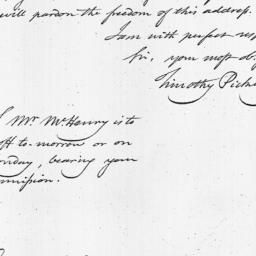 will pardon the freedom of this address.
I am with perfect
Sir, your most
Timothy
Mr. McHenry is to
off to-morrow or on
bearing your